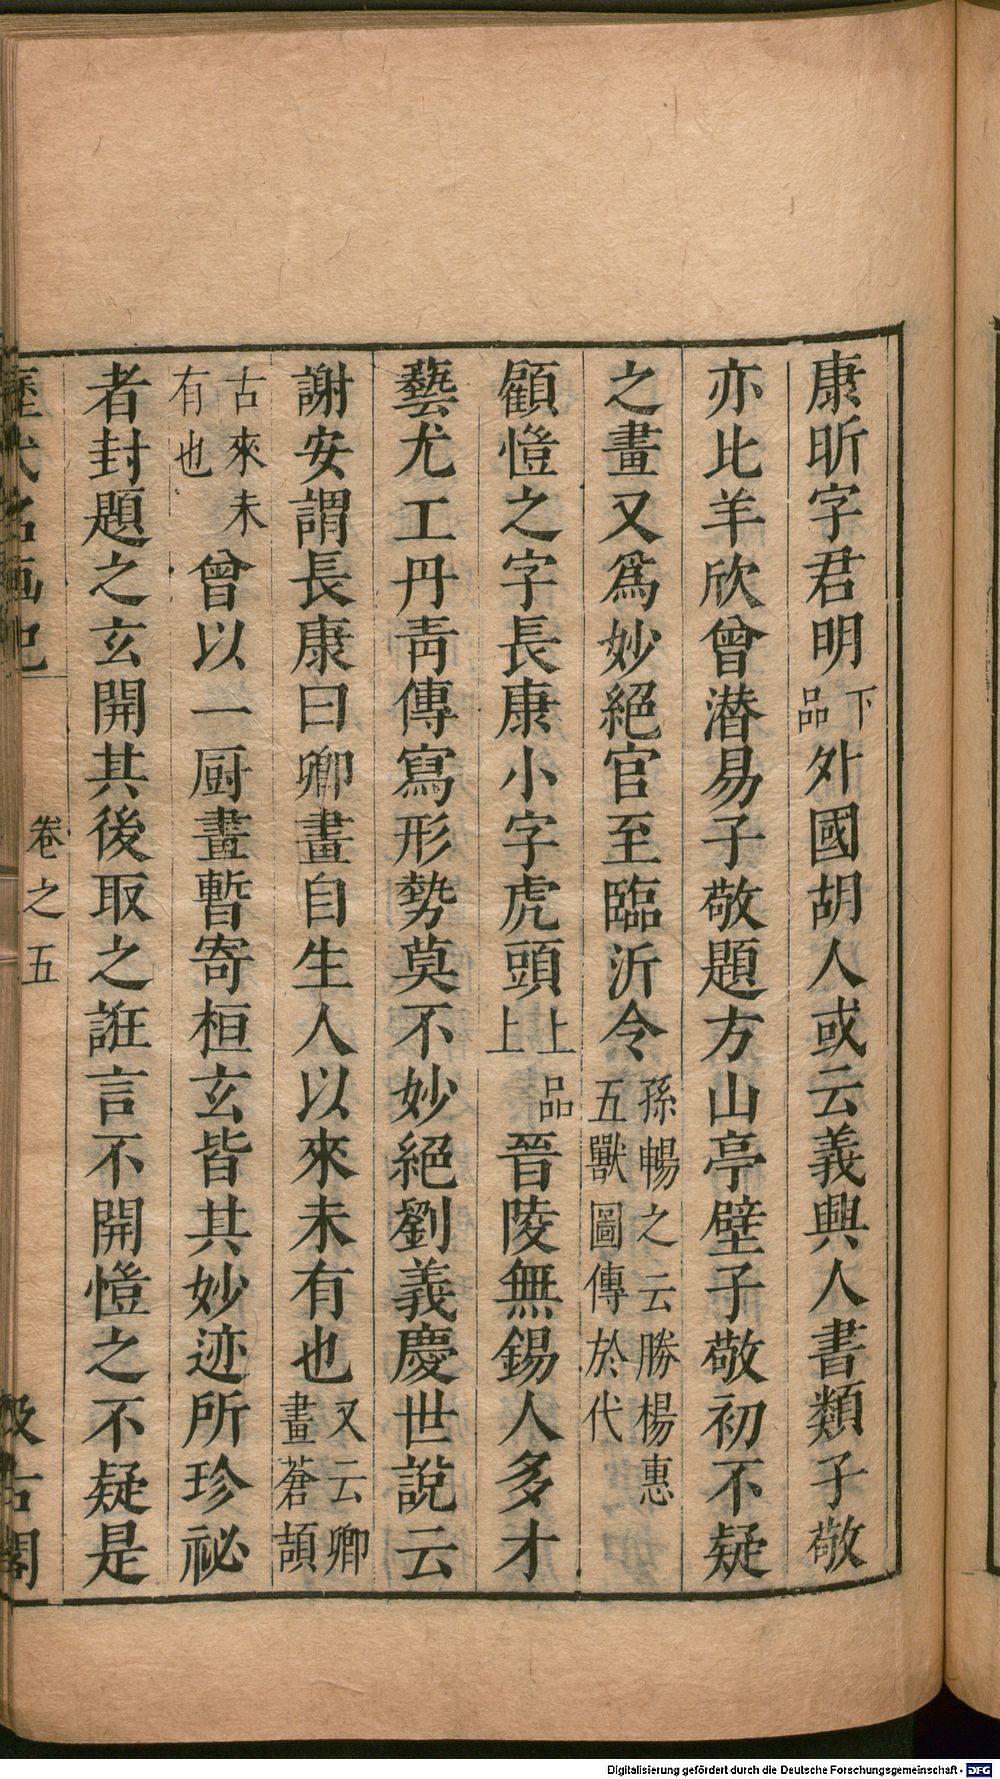 康昕字君明下品外國胡人或云義興人書類子敬
亦比羊欣曾潛易子敬題方山亭壁子敬初不疑
之畫又爲妙絕官至臨沂令孫暢之云勝楊惠五獸圖傳於代
顧愷之字長康小字虎頭上上品晉陵無錫人多才
藝尤工丹青傳寫形勢莫不妙絕劉義慶世說云
謝安謂長康曰卿畫自生人以來未有也又云卿畫蒼頡
古來未有也曾以一厨畫暫寄桓玄皆其妙迹所珍祕
者封題之玄開其後取之誑言不開愷之不疑是
歷代名畫記 卷之五 汲古閣
Digitalisierung gefördert durch die Deutsche Forschungsgemeinschaft - DFG